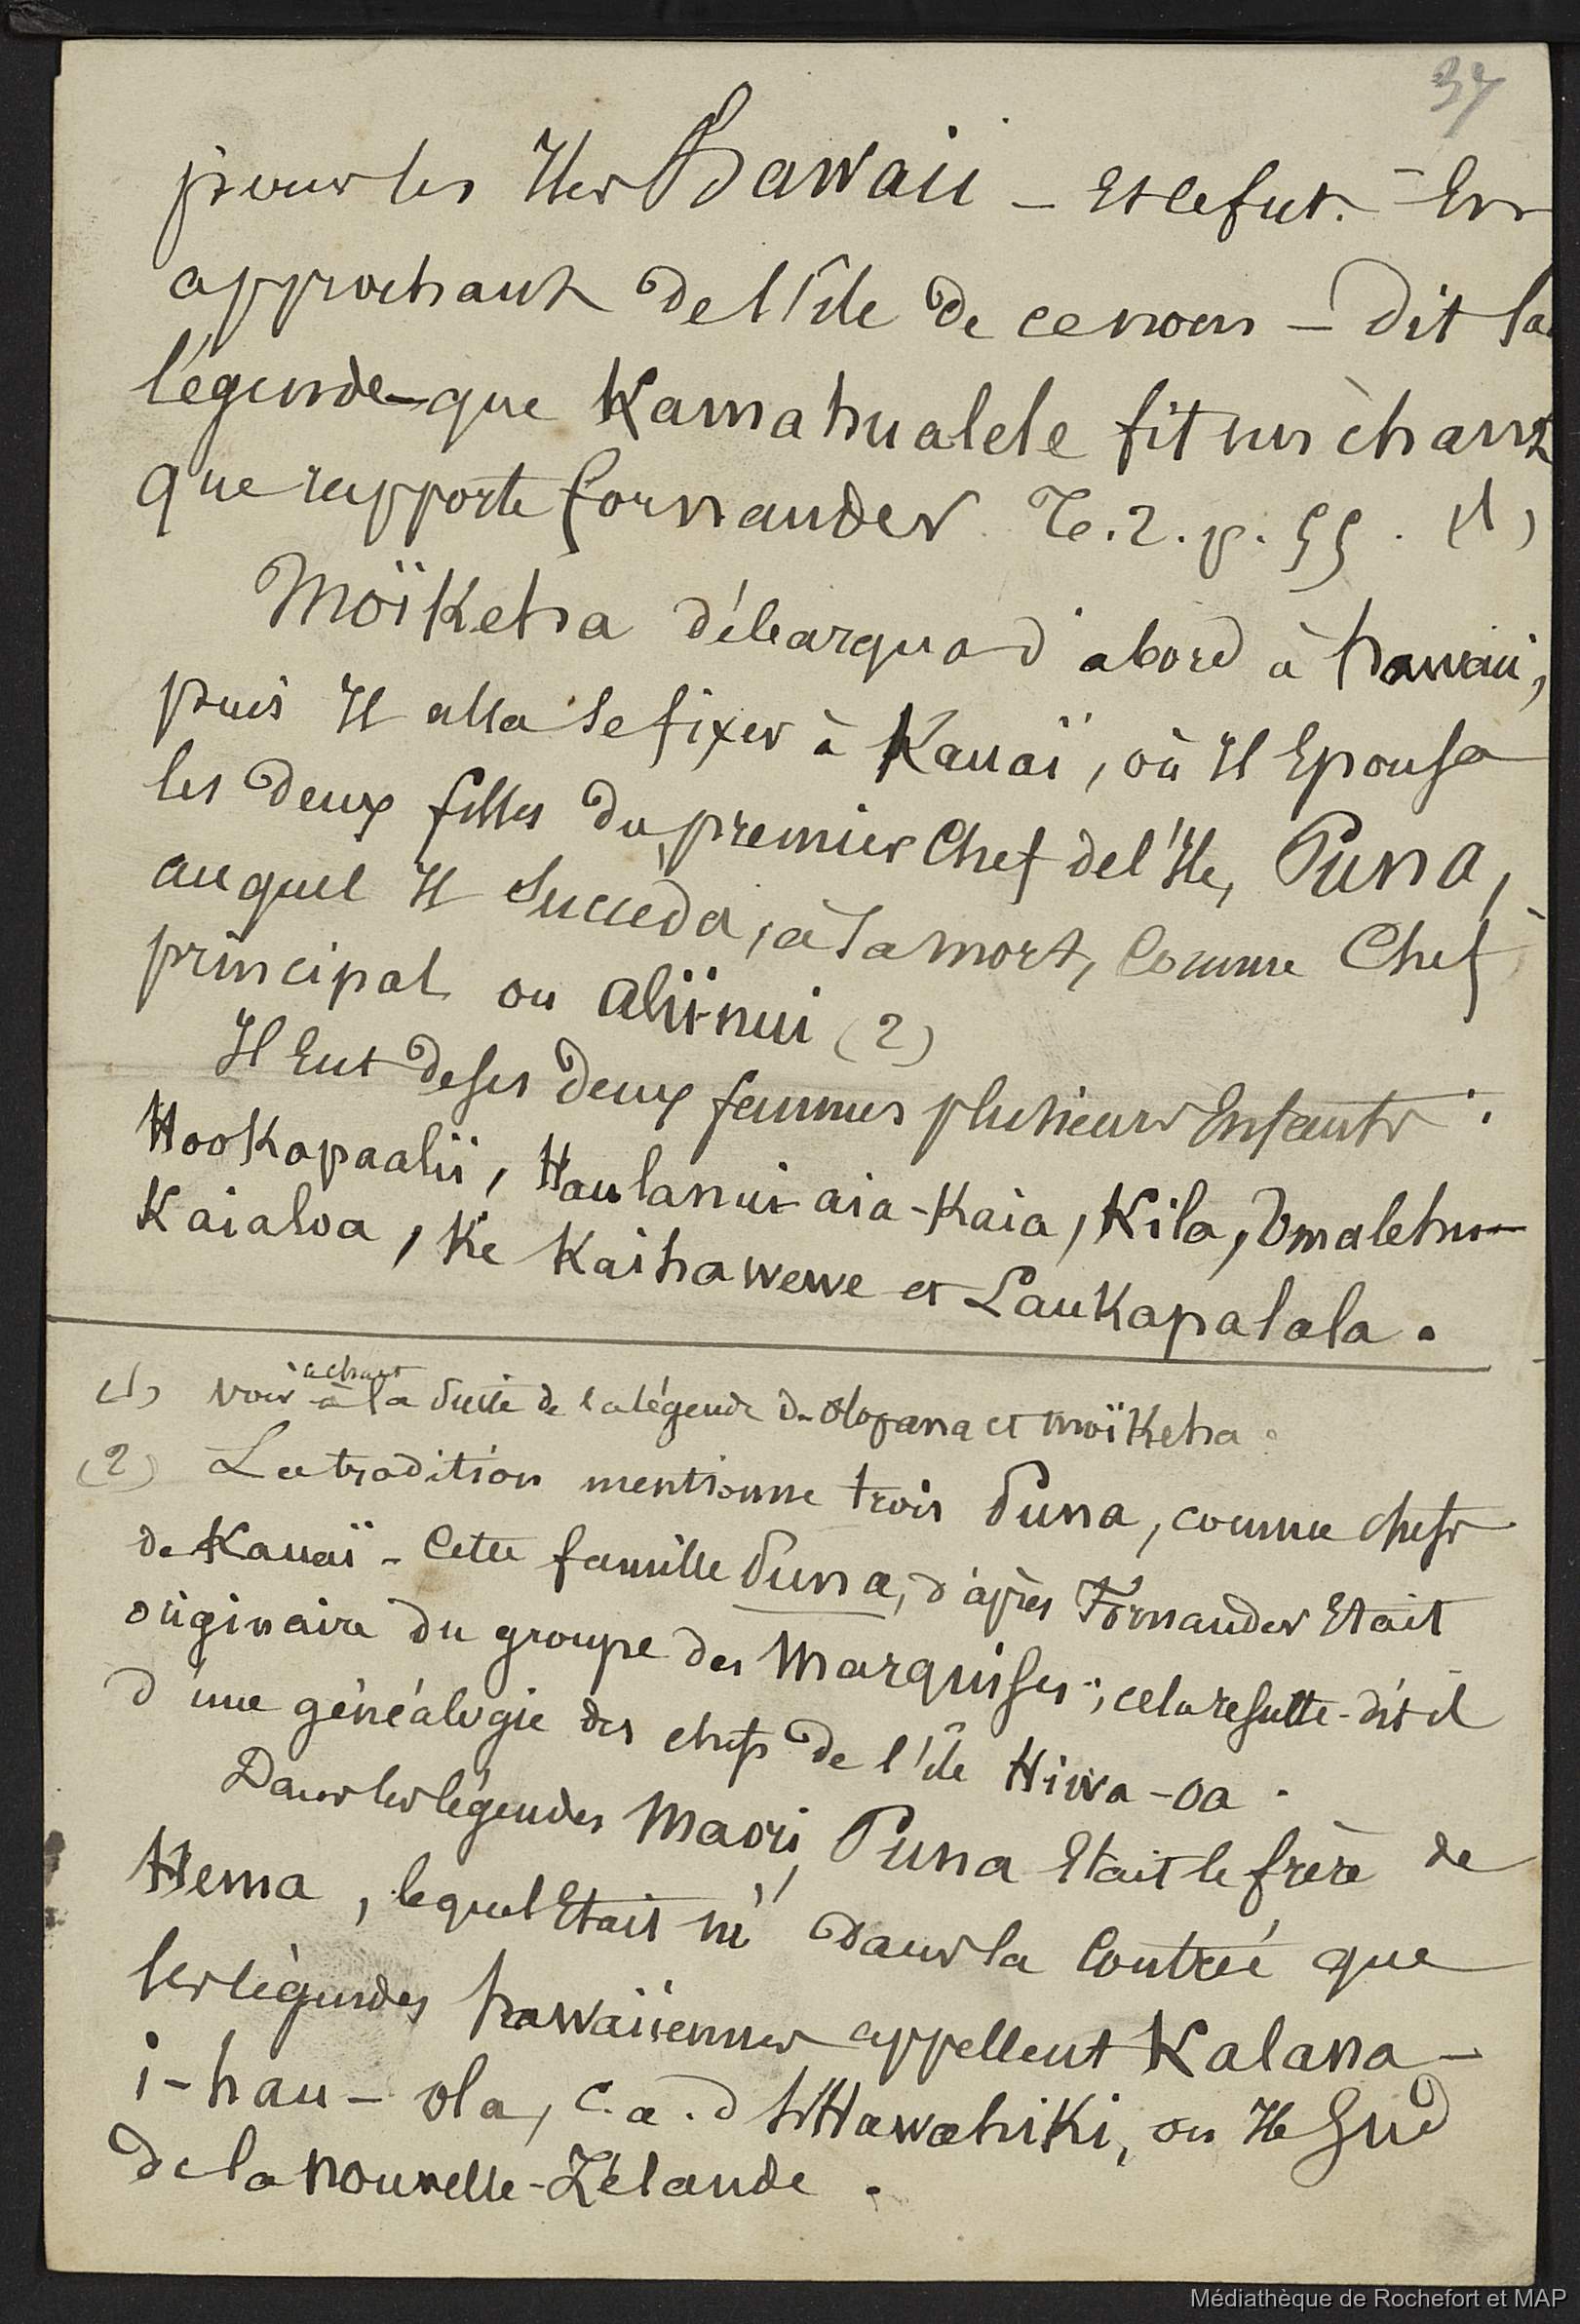 37
pour les Iles Hawaii – Et ce fut. – En
approchant de l'île de ce nom – dit la
légende – que Kamahualele fit un chant
que rapporte Fornander. T. 2. p. 55. (1)
Moïkeha débarqua d'abord à hawaii,
puis Il alla se fixer à Kauaï, où Il Epousa
les deux filles du premier Chef de l'Ile, Puna,
auquel Il Succéda, à sa mort, Comme Chef
principal ou alii-nui (2)
Il Eut de ses deux femmes plusieurs Enfants :
Hookapaalii, Haulanui-aia-Kaia, Kila, Umalehu
Kaialoa, Ke Kaihawewe et Laukapalala.
(1) voir ce chant à la suite de la légende de Olopana et moïkeha.
(2) La tradition mentionne trois Puna, comme chefs
de Kauaï – Cette famille Puna, d'après Fornander Etait
originaire du groupe des Marquises ; cela resulte – dit il
d'une généalogie des chefs de l'île Hiwa-oa.
Dans les légendes Maori, Puna Etait le frère de
Hema, lequel Etait né dans la Contrée que
les légendes hawaiiennes appellent Kalana-
i-hau-ola, c.a.d Hawahiki, ou Ile Sud
de la nouvelle-Zélande.
Médiathèque de Rochefort et MAP